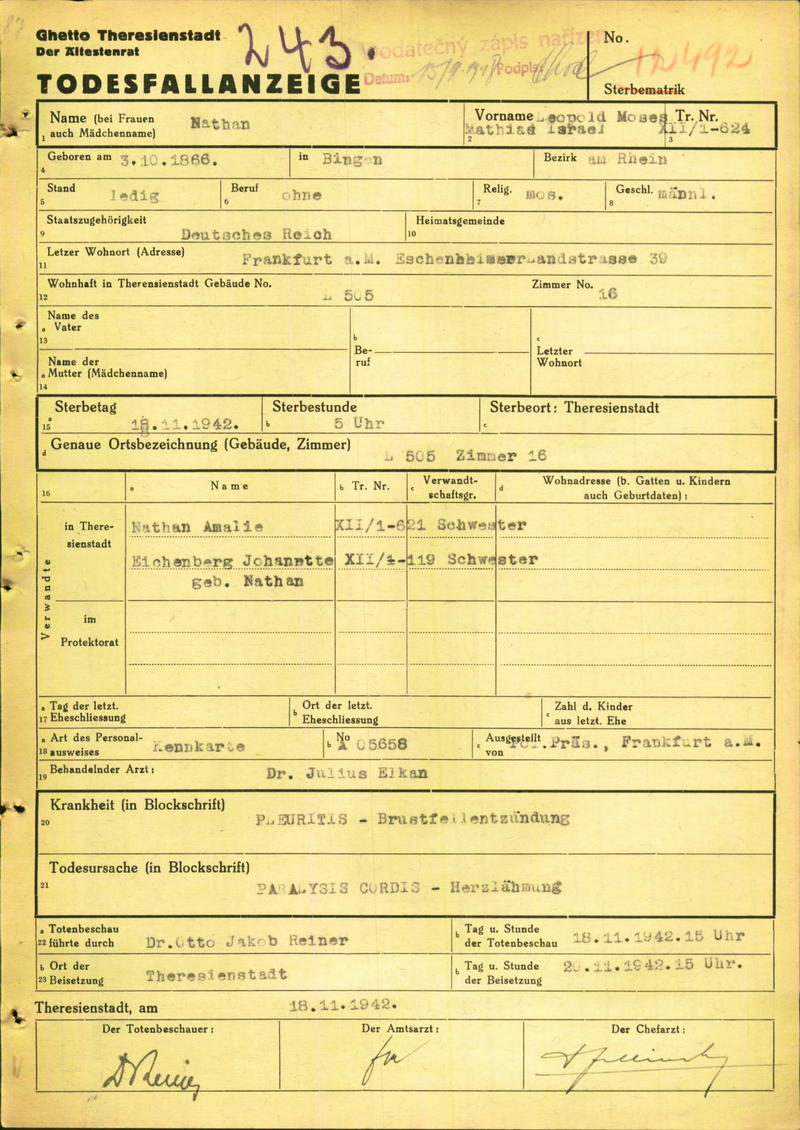 Ghetto Theresienstadt
Der Ältestenrat
243.
Dodatečný zápis nařízen
Datum: Podpis:
TODESFALLANZEIGE
No.
12492
Sterbematrik
Name (bei Frauen auch Mädchenname) Nathan
1
Vorname Leopold Moses
Mathias Israel
2
Tr. Nr.
XII/1-624
3
Geboren am 3.10.1866.
4
in Bingen
Bezirk am Rhein
Stand ledig
5
Beruf ohne
6
Relig. mos.
7
Geschl. männl.
8
Staatszugehörigkeit
9 Deutsches Reich
Heimatsgemeinde
10
Letzer Wohnort (Adresse)
11 Frankfurt a.M. Eschenheimerlandstrasse 39
Wohnhaft in Therensienstadt Gebäude No.
12 L 505
Zimmer No.
16
Name des
a Vater
13
b
Beruf
c
Letzter
Wohnort
Name der
a Mutter (Mädchenname)
14
Sterbetag
15 a 18.11.1942.
Sterbestunde
b 5 Uhr
Sterbeort: Theresienstadt
c
d Genaue Ortsbezeichnung (Gebäude, Zimmer)
L 505 Zimmer 16
16
a Name
b Tr. Nr.
c Verwandtschaftsgr.
d Wohnadresse (b. Gatten u. Kindern
auch Geburtdaten):
Verwandte
in Theresienstadt
Nathan Amalie XII/1-621 Schwester
Eichenberg Johannette XII/1-119 Schwester
geb. Nathan
im
Protektorat
a Tag der letzt.
17 Eheschliessung
b Ort der letzt.
Eheschliessung
c Zahl d. Kinder
aus letzt. Ehe
a Art des Personal-
18 ausweises Kennkarte
b No
A 05658
c Ausgestellt
von Pol.Präs., Frankfurt a.M.
19 Behandelnder Arzt: Dr. Julius Elkan
Krankheit (in Blockschrift)
20 PLEURITIS - Brustfellentzündung
Todesursache (in Blockschrift)
21 PARALYSIS CORDIS - Herzlähmung
a Totenbeschau
22 führte durch Dr.Otto Jakob Reiner
b Tag u. Stunde
der Totenbeschau 18.11.1942.15 Uhr
b Ort der
23 Beisetzung Theresienstadt
b Tag u. Stunde
der Beisetzung .11.1942.15 Uhr.
Theresienstadt, am 18.11.1942.
Der Totenbeschauer:
Der Amtsarzt:
Der Chefarzt: